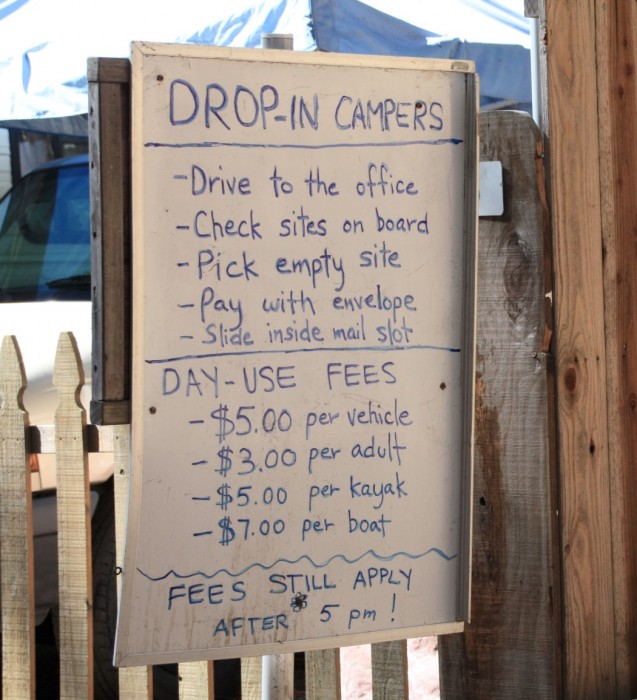 DROP-IN CAMPERS
- Drive to the office
- Check sites on board
- Pick empty site
- Pay with envelope
- Slide inside mail slot
DAY-USE FEES
- $5.00 per vehicle
- $3.00 per adult
- $5.00 per kayak
- $7.00 per boat
FEES STILL APPLY
AFTER 5 pm!